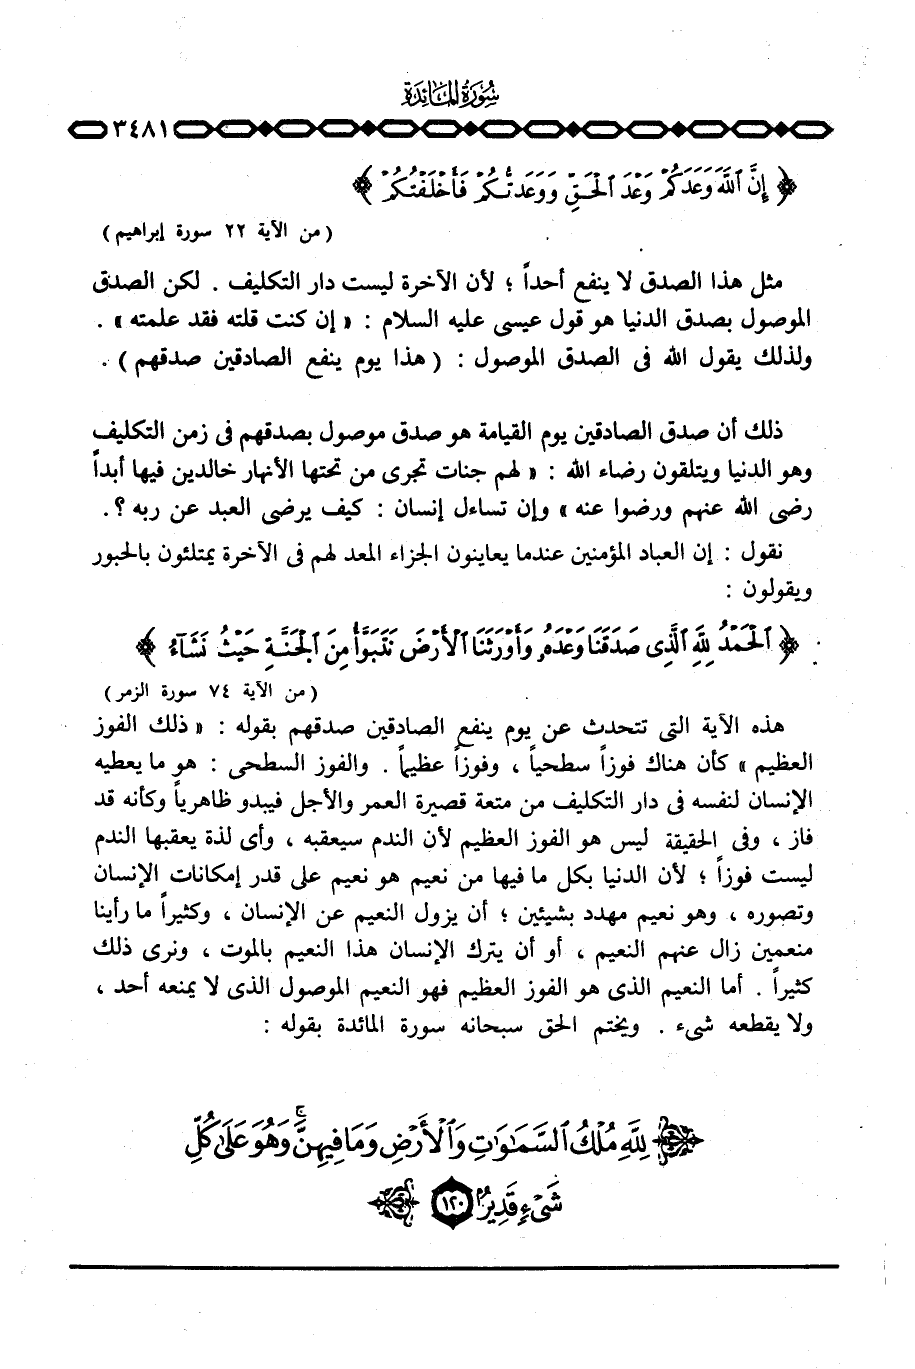 سُورَةُ المَائِدَة
٣٤٨١
﴿ إِنَّ ٱللَّهَ وَعَدَكُمْ وَعْدَ ٱلْحَقِّ وَوَعَدتُّكُمْ فَأَخْلَفْتُكُمْ ﴾
( من الآية ٢٢ سورة إبراهيم )
مثل هذا الصدق لا ينفع أحداً ؛ لأن الآخرة ليست دار التكليف . لكن الصدق
الموصول بصدق الدنيا هو قول عيسى عليه السلام : « إن كنت قلته فقد علمته » .
ولذلك يقول الله فى الصدق الموصول : ( هذا يوم ينفع الصادقين صدقهم ) .
ذلك أن صدق الصادقين يوم القيامة هو صدق موصول بصدقهم فى زمن التكليف
وهو الدنيا ويتلقون رضاء الله : « لهم جنات تجرى من تحتها الأنهار خالدين فيها أبداً
رضى الله عنهم ورضوا عنه » وإن تساءل إنسان : كيف يرضى العبد عن ربه ؟ .
نقول : إن العباد المؤمنين عندما يعاينون الجزاء المعد لهم فى الآخرة يمتلئون بالحبور
ويقولون :
﴿ ٱلْحَمْدُ لِلَّهِ ٱلَّذِى صَدَقَنَا وَعْدَهُۥ وَأَوْرَثَنَا ٱلْأَرْضَ نَتَبَوَّأُ مِنَ ٱلْجَنَّةِ حَيْثُ نَشَآءُ ﴾
( من الآية ٧٤ سورة الزمر )
هذه الآية التى تتحدث عن يوم ينفع الصادقين صدقهم بقوله : « ذلك الفوز
العظيم » كأن هناك فوزاً سطحياً ، وفوزاً عظيماً . والفوز السطحى : هو ما يعطيه
الإنسان لنفسه فى دار التكليف من متعة قصيرة العمر والأجل فيبدو ظاهرياً وكأنه قد
فاز ، وفى الحقيقة ليس هو الفوز العظيم لأن الندم سيعقبه ، وأى لذة يعقبها الندم
ليست فوزاً ؛ لأن الدنيا بكل ما فيها من نعيم هو نعيم على قدر إمكانات الإنسان
وتصوره ، وهو نعيم مهدد بشيئين ؛ أن يزول النعيم عن الإنسان ، وكثيراً ما رأينا
منعمين زال عنهم النعيم ، أو أن يترك الإنسان هذا النعيم بالموت ، ونرى ذلك
كثيراً . أما النعيم الذى هو الفوز العظيم فهو النعيم الموصول الذى لا يمنعه أحد ،
ولا يقطعه شىء . ويختم الحق سبحانه سورة المائدة بقوله :
لِلَّهِ مُلْكُ ٱلسَّمَٰوَٰتِ وَٱلْأَرْضِ وَمَا فِيهِنَّ ۚ وَهُوَ عَلَىٰ كُلِّ
شَىْءٍ قَدِيرٌ ١٢٠